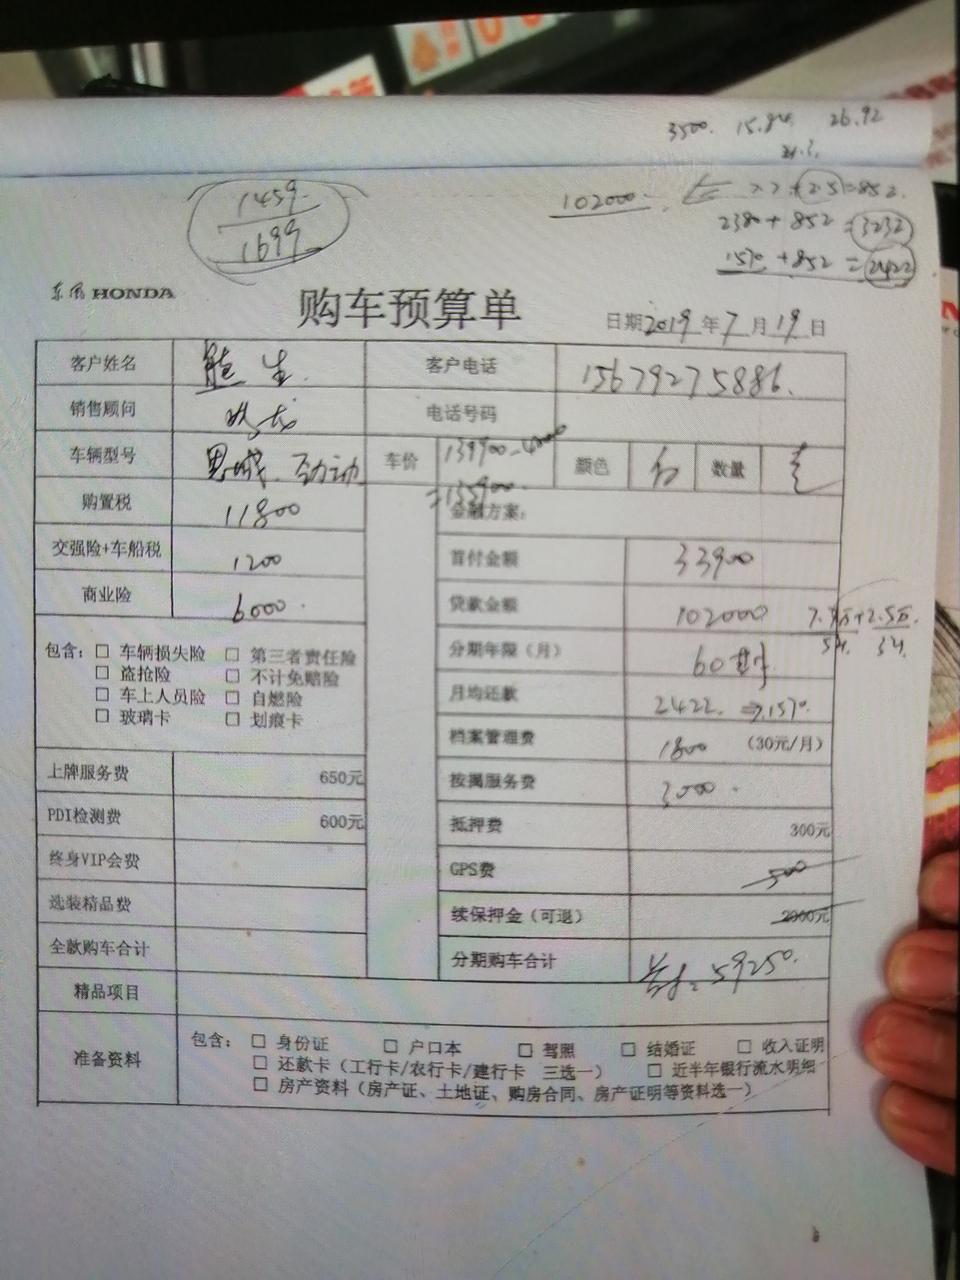 3500. 15.84 26.92
21.3.
1459.
1699
102000
2380+852=3232
1570+852=2422
东风HONDA
购车预算单
日期2019年7月19日
客户姓名 熊生. 客户电话 15679275886.
销售顾问 电话号码
车辆型号 思域.劲动 车价 139900-4000 颜色 数量
=135900.
购置税 11800 金融方案:
交强险+车船税 1200 首付金额 33900
商业险 6000. 贷款金额 102000 7.7万+2.5万.
包含: □ 车辆损失险 □ 第三者责任险 分期年限(月) 60期
□ 盗抢险 □ 不计免赔险
□ 车上人员险 □ 自燃险 月均还款 2422. ⇒1570.
□ 玻璃卡 □ 划痕卡 档案管理费 1800 (30元/月)
上牌服务费 650元 按揭服务费 3000.
PDI检测费 600元 抵押费 300元
终身VIP会费 GPS费 500
选装精品费 续保押金(可退) 2000元
全款购车合计 分期购车合计 59250.
精品项目
准备资料 包含: □ 身份证 □ 户口本 □ 驾照 □ 结婚证 □ 收入证明
□ 还款卡(工行卡/农行卡/建行卡 三选一) □ 近半年银行流水明细
□ 房产资料(房产证、土地证、购房合同、房产证明等资料选一)